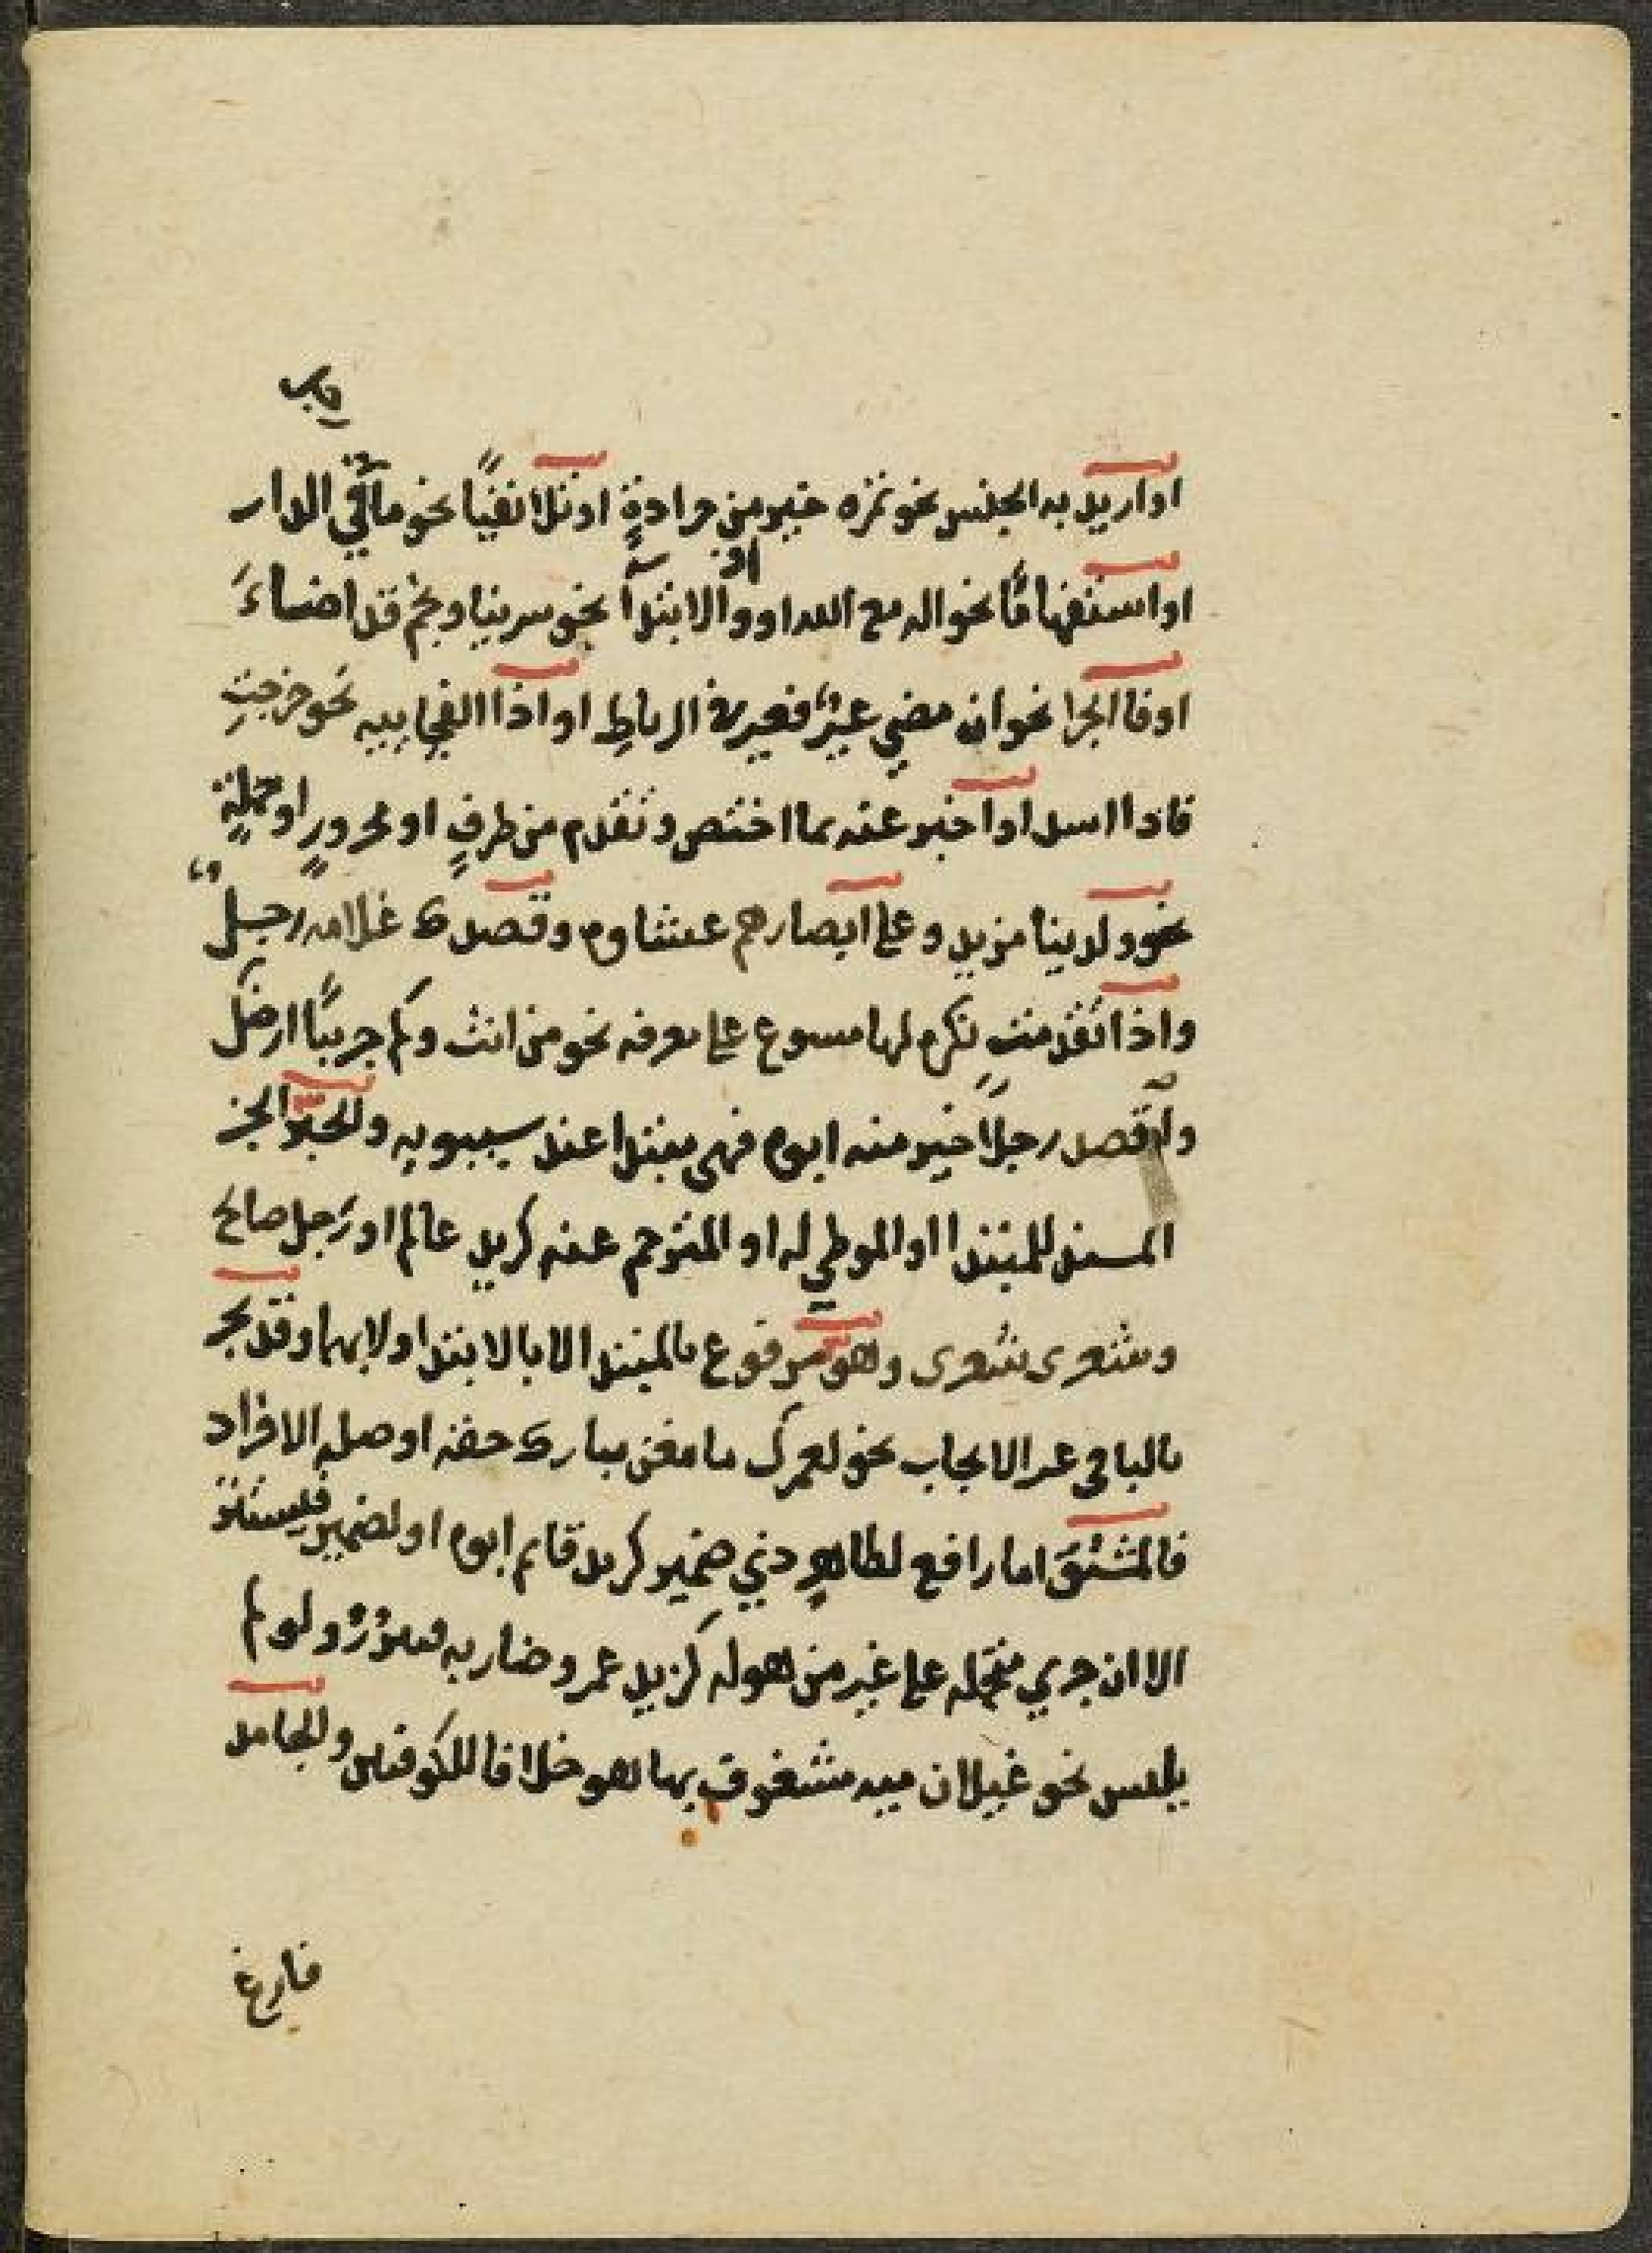 باب
او اريد به الجنس نحو تمره خير من جرادةٍ او تلا نفيًا نحو ما في الدار
او استفهامًا نحو اله مع الله او واو الابتدآ نحو سرينا ونجم قد اضاءَ
او فا الجزا نحو ان مضي عير فعير في الرباطِ او اذا الفجاييه نحو خرجت
فاذا اسد او اخبر عنه بما اختص وتقدم من ظرفٍ او مجرورٍ او جملةٍ
نحو ولدينا مزيد وعلى ابصارهم غشاوه وقصدك غلامه رجل
واذا تقدمت نكره لها مسوغ على معرفه نحو من انت وكم جريبًا ارضك
واقصد رجلًا خير منه ابوه فهى مبتدا عند سيبويه والخبر الجز
المسند للمبتدا او الموطي له او المترجم عنه كزيد عالم او رجل صالح
وشعرى شعرى وهو مرفوع بالمبتدا لا بالابتدا ولا بهما وقد يجر
بالبا فى غير الايجاب نحو لعمرك ما معن بتارك حقه واصله الافراد
فالمشتق اما رافع لظاهرٍ ذي ضمير كزيد قايم ابوه او لضمير فيستتر
الا ان جري متحمله على غير من هو له كزيد عمرو ضاربه فيبرز ولو لم
يلبس نحو غيلان ميه مشغوف بها هو خلافا للكوفيين والجامد
فارغ